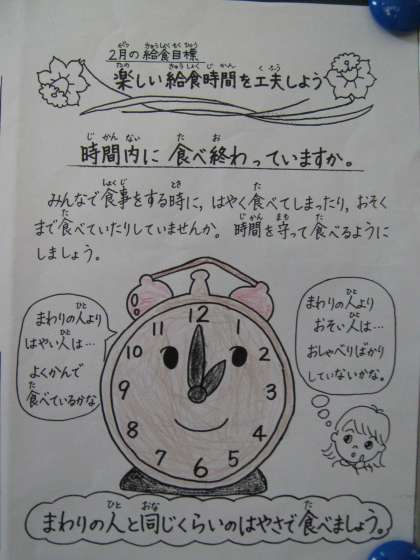 2月の給食目標
楽しい給食時間を工夫しよう
時間内に食べ終わっていますか。
みんなで食事をする時に，はやく食べてしまったり，おそく
まで食べていたりしていませんか。時間を守って食べるように
しましょう。
まわりの人より
はやい人は…
よくかんで
食べているかな
まわりの人より
おそい人は…
おしゃべりばかり
していないかな。
12
1
2
3
4
5
6
7
8
9
10
11
まわりの人と同じくらいのはやさで食べましょう。